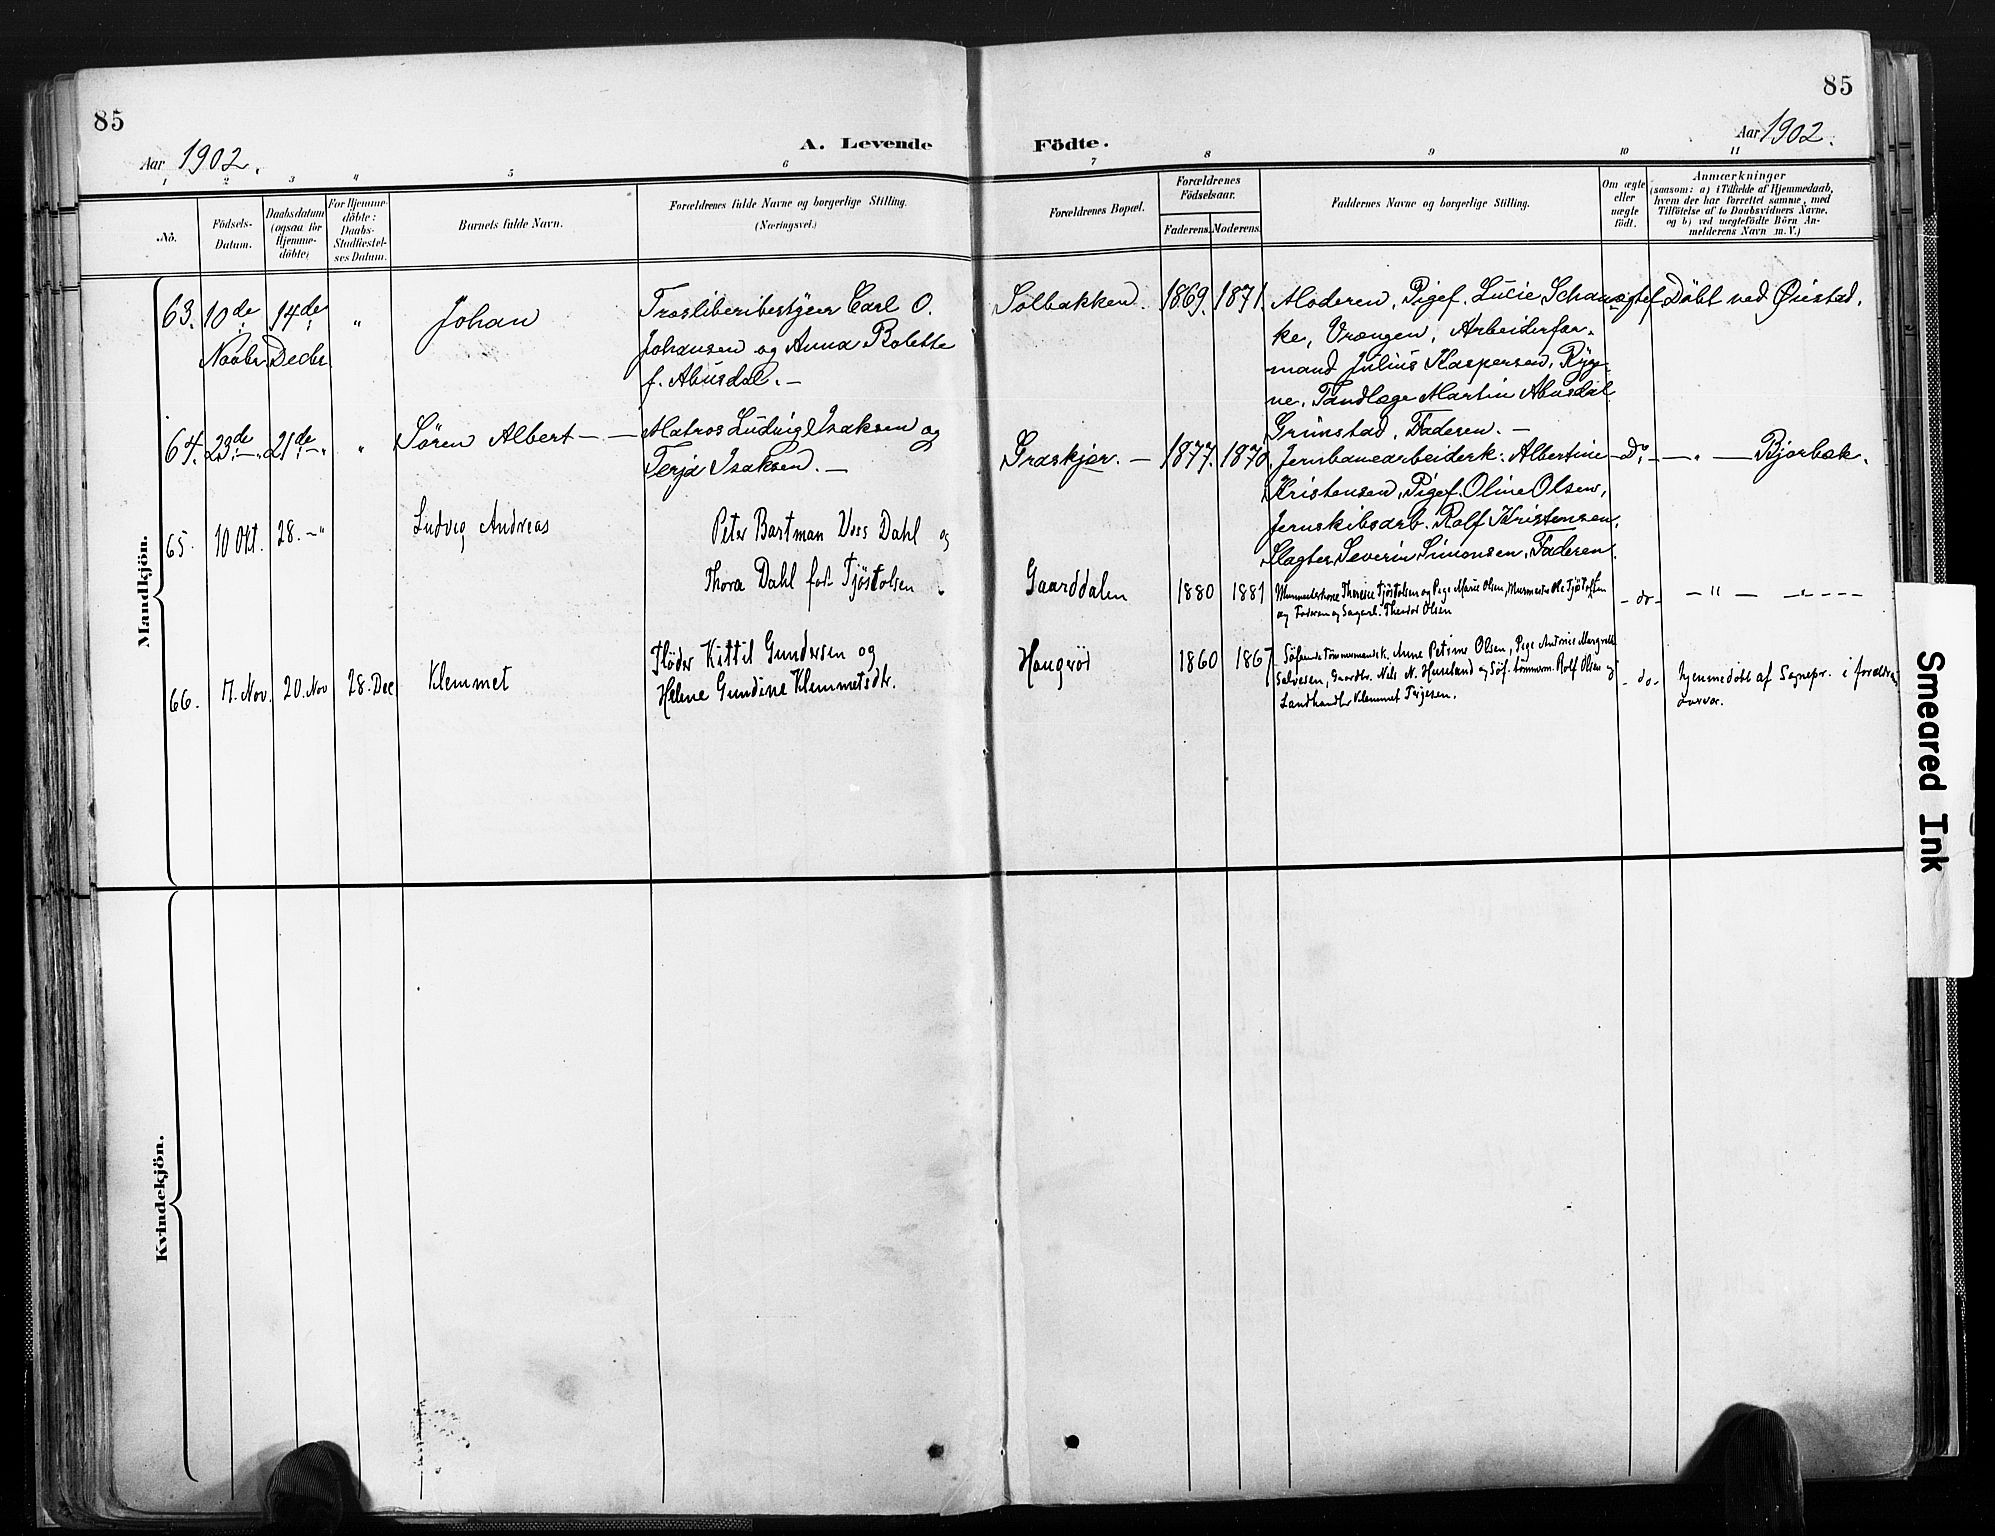 85
85
Aar 1902.
A. Levende
Födte.
Aar 1902.
1 2 3 " 5 6 7 8 9 10 11
No.
Födsels-
Datum.
Daabsdatum
(ogsaa for
Hjemme-
döbte)
For Hjemme-
döbte:
Daabs-
Stadfæstel-
ses Datum.
Barnets fulde Navn.
Forældrenes fulde Navne og borgerlige Stilling.
(Næringsvei.)
Forældrenes Bopæl.
Forældrenes
Födselsaar.
Faderens. Moderens.
Faddernes Navne og borgerlige Stilling.
Om ægte
eller
uægte
födt.
Anmærkninger
(saasom: a) i Tilfælde af Hjemmedaab,
hvem der har forrettet samme, med
Tilföielse af to Daabsvidners Navne,
og b) ved uegtefödte Börn An-
melderens Navn m. V.)
Mandkjön.
63. 10de Novbr. 14de Decbr. " Johan
Carl O.
Johansen og Anna Bolette
f. Abusdal. —
Solbakken. 1869. 1871.
Moderen, Pigef. Lucie Schans-
ke, Vrængen, Arbeiderfor-
mand Julius Kaspersen, Ryg-
ne, Tandlæge Martin Abusdal
Grimstad, Faderen. —
egtef. Döbt ved Øiestad.
64. 23de — " 21de — " " Søren Albert — —
Matros Ludvig Isaksen og
Terja Isaksen. —
Græskjær. — 1877. 1870.
Jernbanearbeiderk. Albertine
Kristensen, Pigef. Oline Olsen,
Jernskibsarb. Rolf Kristensen,
Slagter Severin Simonsen, Faderen.
— Do — — " — Bjorbæk.
65. 10 Okt. 28. — " Ludvig Andreas
Peter Bartman Voss Dahl og
Thora Dahl fød. Tjöstolsen
Gaarddalen 1880 1881
Therese Tjöstolsen og Pige Marie Olsen, Murmester Ole Tjöstolsen
og Faderen og Theodor Olsen
— do — — " — " — — —
66. 17. Nov. 20. Nov 28. Dec Klemmet
Fløder Kittil Gundersen og
Helene Gundine Klemmetsdtr.
Haugrød 1860 1867
Anne Petrine Olsen, Pige Andrine Margrethe
Salvesen, Gaardbr. Nils N. Huseland og Söf. tömmerm. Rolf Olsen og
Landhandler Klemmet Terjesen.
— do — hjemmedöbt af Sognepr. i forældre
Kvindekjön.
Smeared Ink